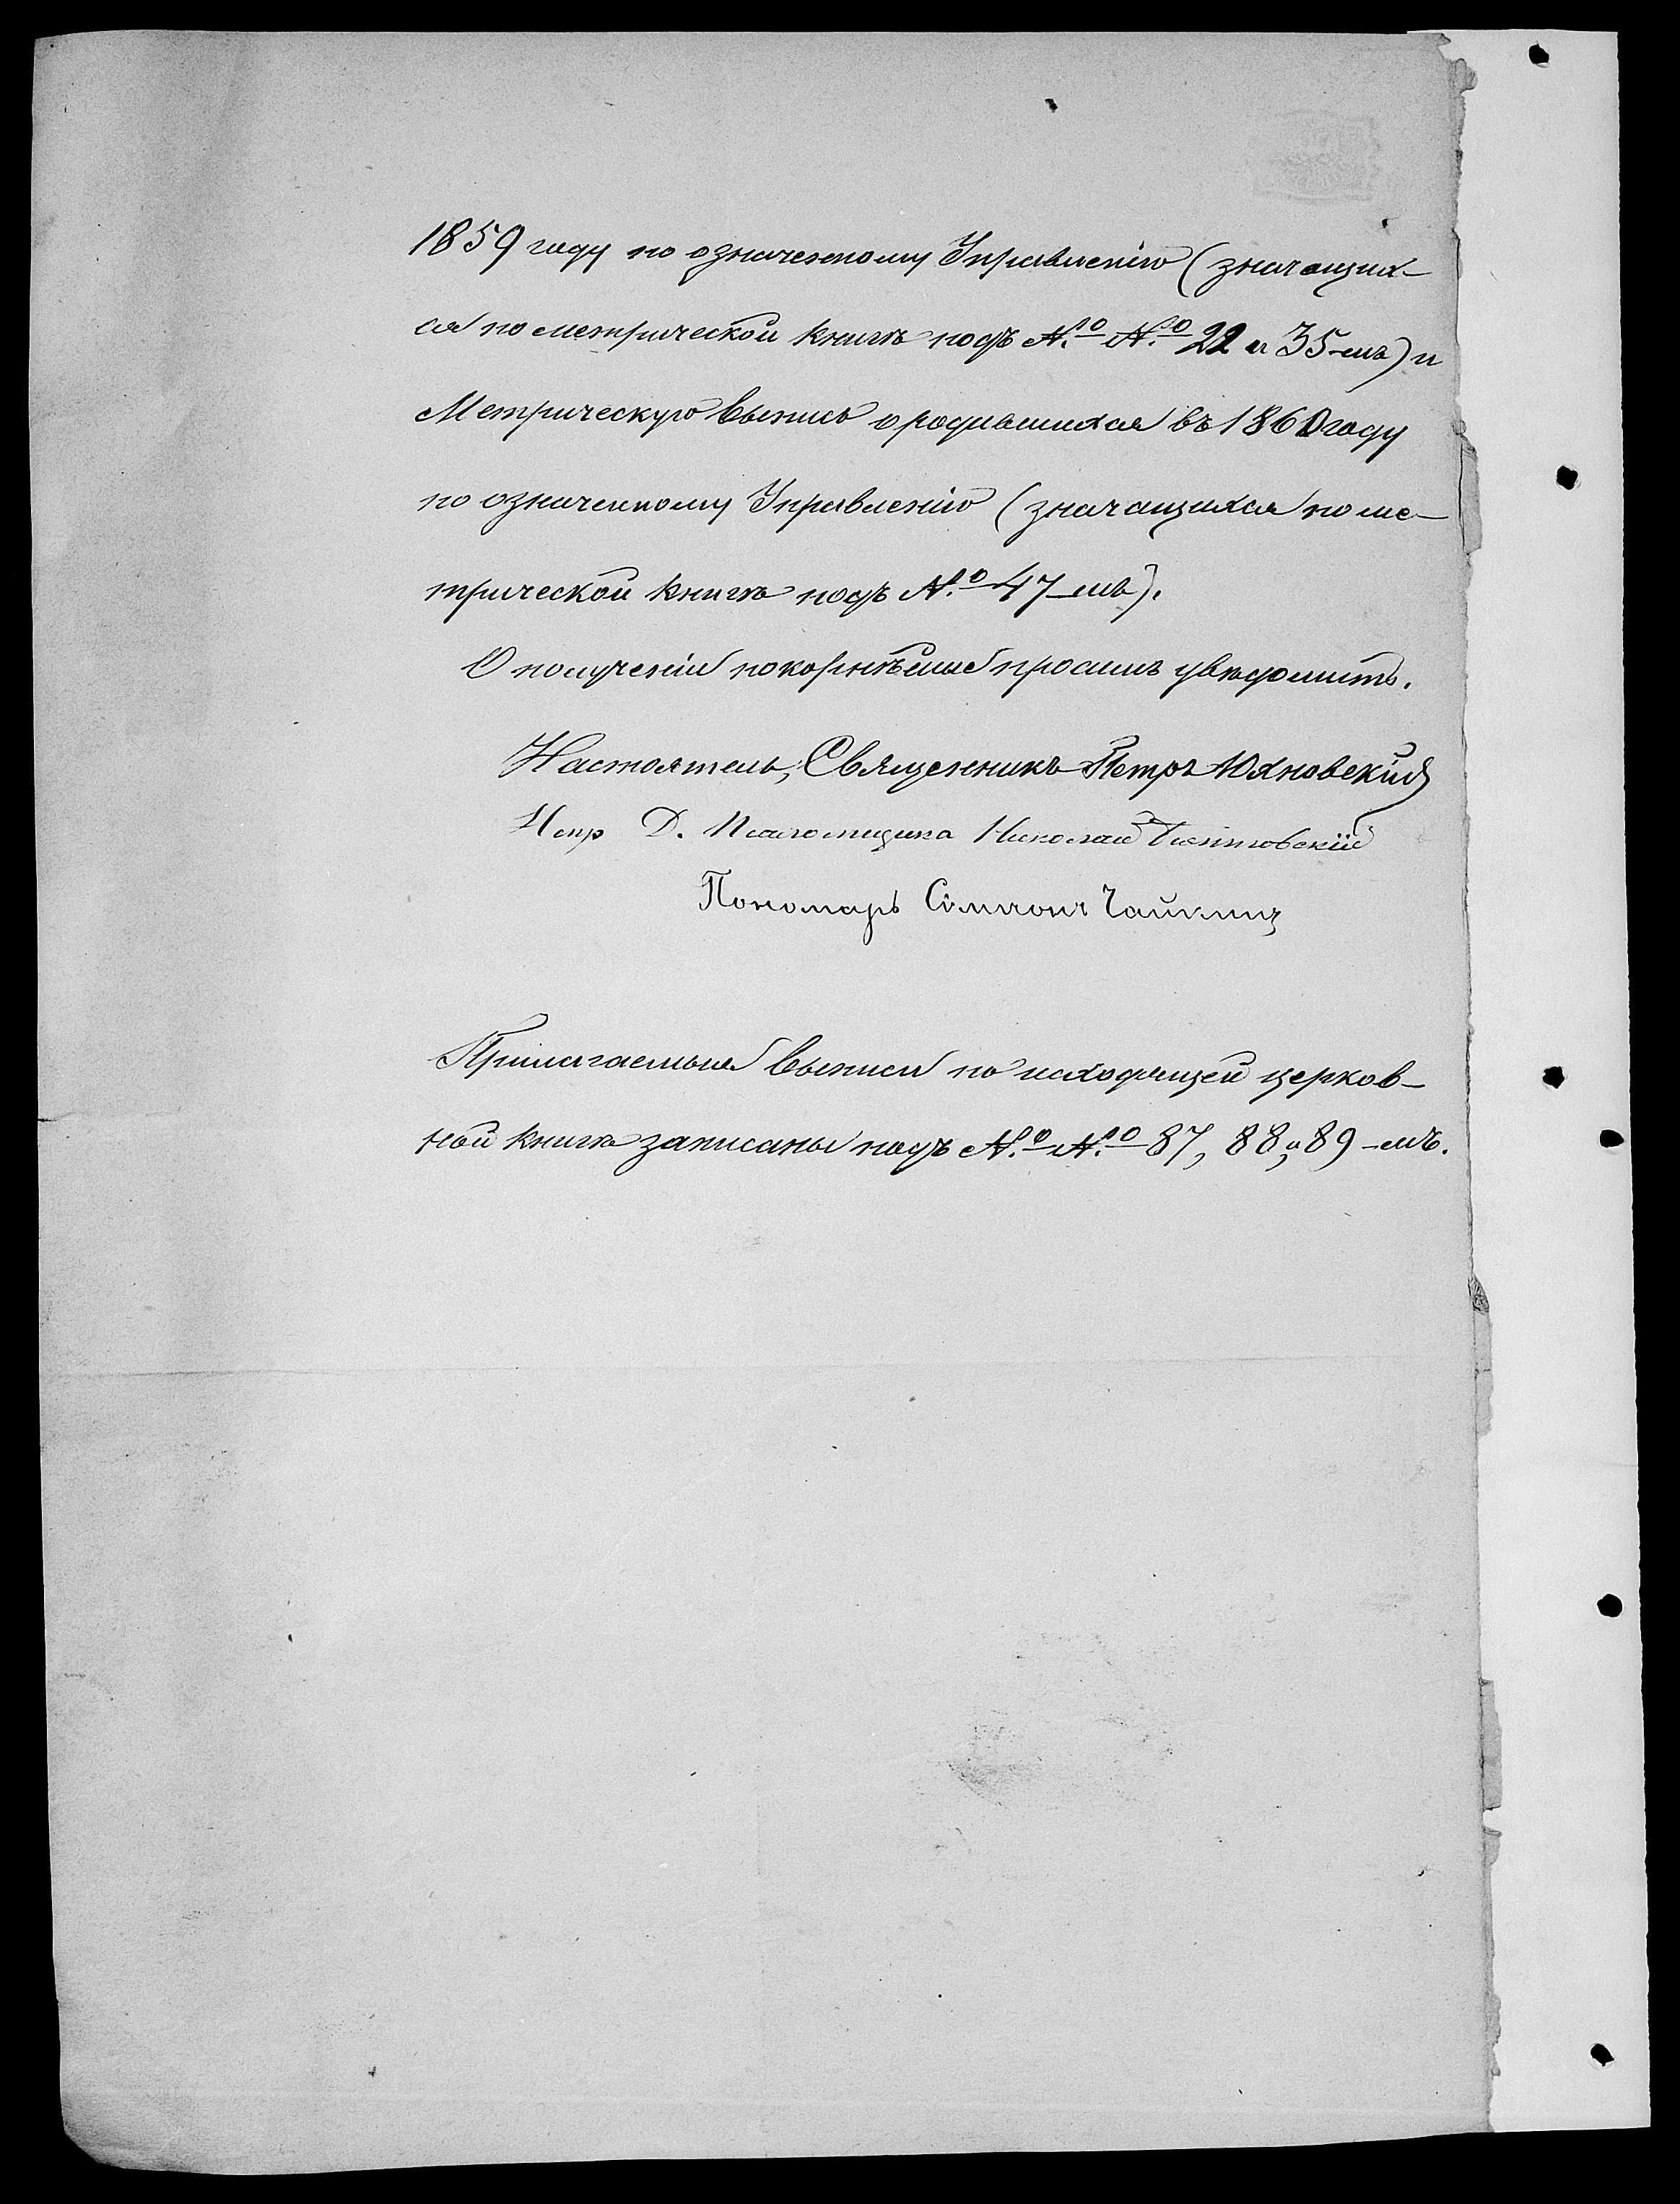 1859 году по означенному Управленію (значащих-
ся по метрической книгѣ подъ №№ 22 и 35-мъ) и
Метрическую Выпись о родившихся въ 1860 году
по означенному Управленію (значащихся по ме-
трической книгѣ подъ № 47-мъ).
О полученіи покорнѣйше просимъ увѣдомить.
Настоятель, Священникъ Петръ Юхновскій
Испр Д. Псаломщика Николай
Пономарь Симеонъ
Прилагаемыя Выписи по исходящей церков-
ной книгѣ записаны подъ №№ 87, 88, и 89-мъ.